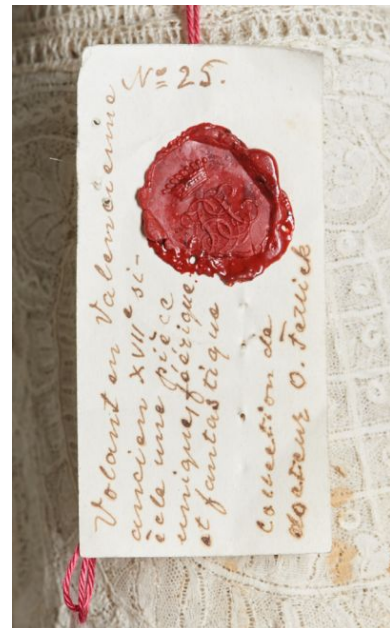 Nº 25.
Volant en Valencienne
ancien XVIIe si-
ècle une pièce
unique, féérique
et fantastique
collection de
docteur O. Feriek